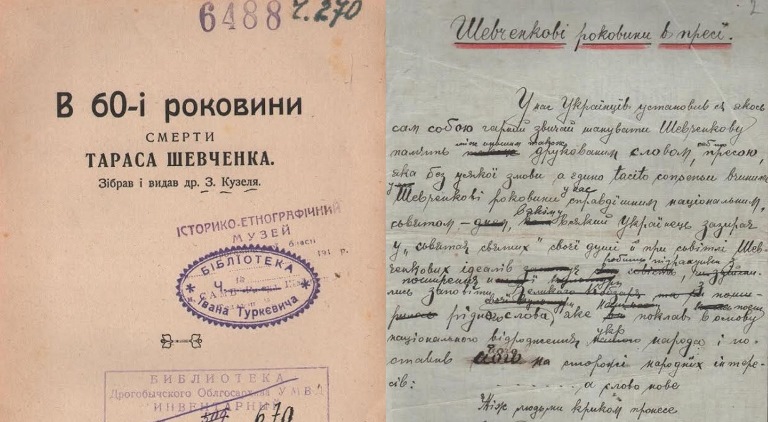 6488 ч. 270
В 60-і роковини
СМЕРТИ
ТАРАСА ШЕВЧЕНКА.
Зібрав і видав др. З. Кузеля.
ІСТОРИКО-ЕТНОГРАФІЧНИЙ
МУЗЕЙ
БІБЛІОТЕКА
Івана Туркевича
БИБЛИОТЕКА
Дрогобычского Облгосархива УМВД
ИНВЕНТАРНЫЙ
670
2
Шевченкові роковини в пресі.
У нас Українців установив ся якось
сам собою гарний звичай шанувати Шевченкову
память друкованим словом, пресою,
яка без усякої змови а єдино tacito consensu вчинила
Шевченкові роковини у нас справдішним національним
сьвятом, Всякий Українець зазирає
у „сьвятая сьвятих" своєї душі й при сьвітлі Шев-
ченкових ідеалів
поширеня
рідного слова, яке поклав в основу
національного відродженя укр народа і по-
ставив на сторожі народних інтере-
сів:
. . . а слово нове
Між людьми криком пронесе